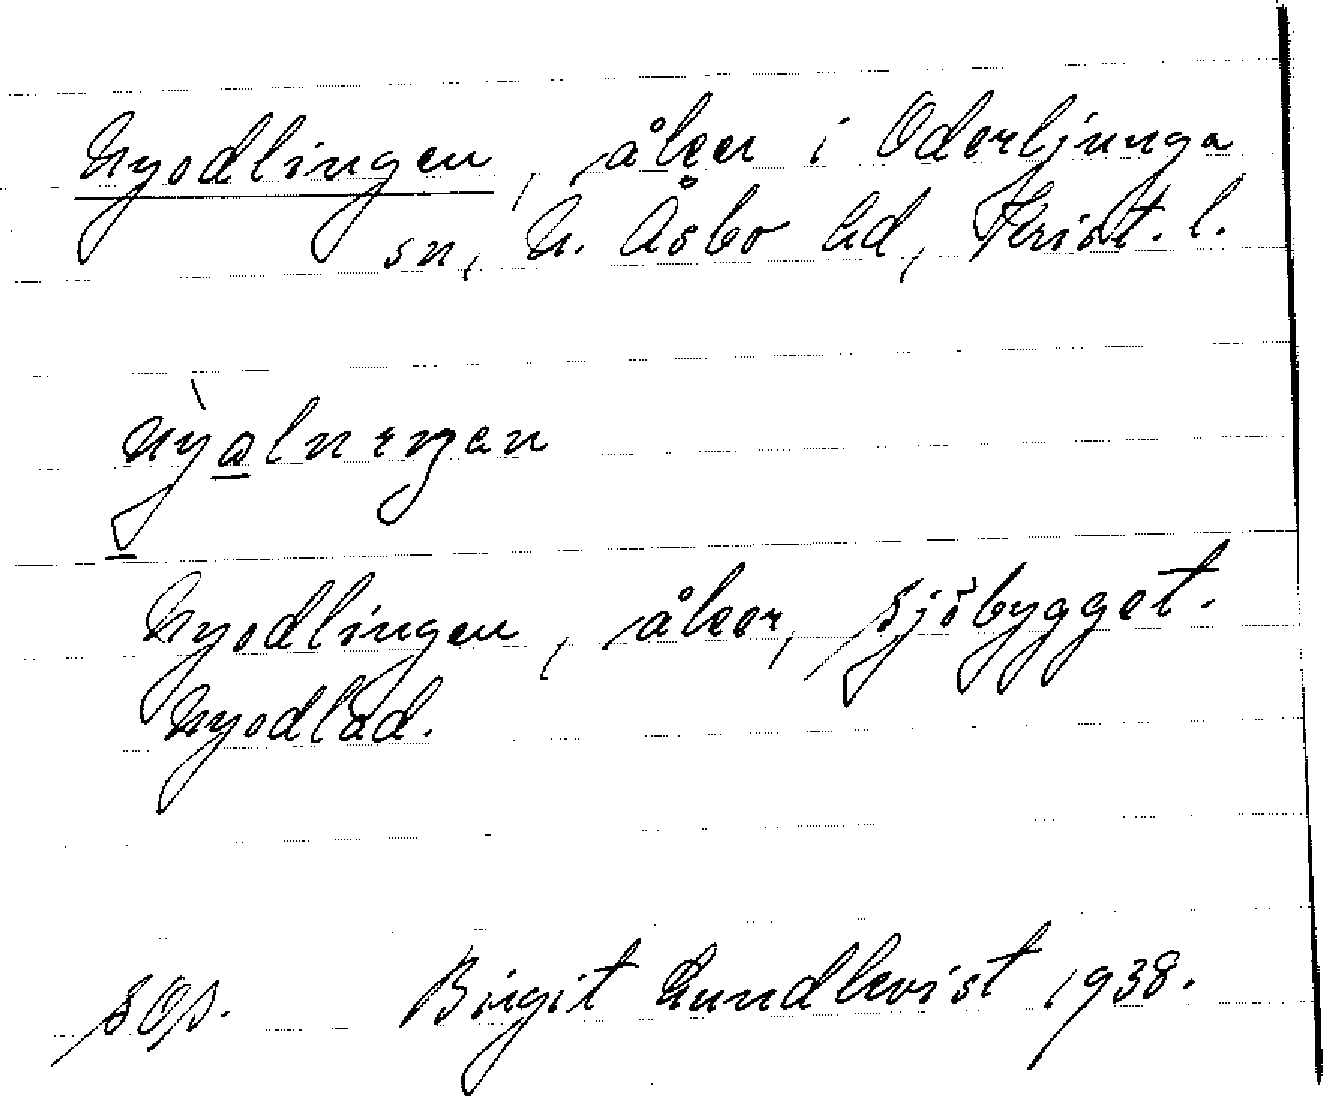 Nyodlingen, åker i Oderljunga
sn, N. Åsbo hd, Krist. l.
Nyodlingen, åker, Sjöbygget.
Nyodlad.
Birgit Lundkvist 1938.